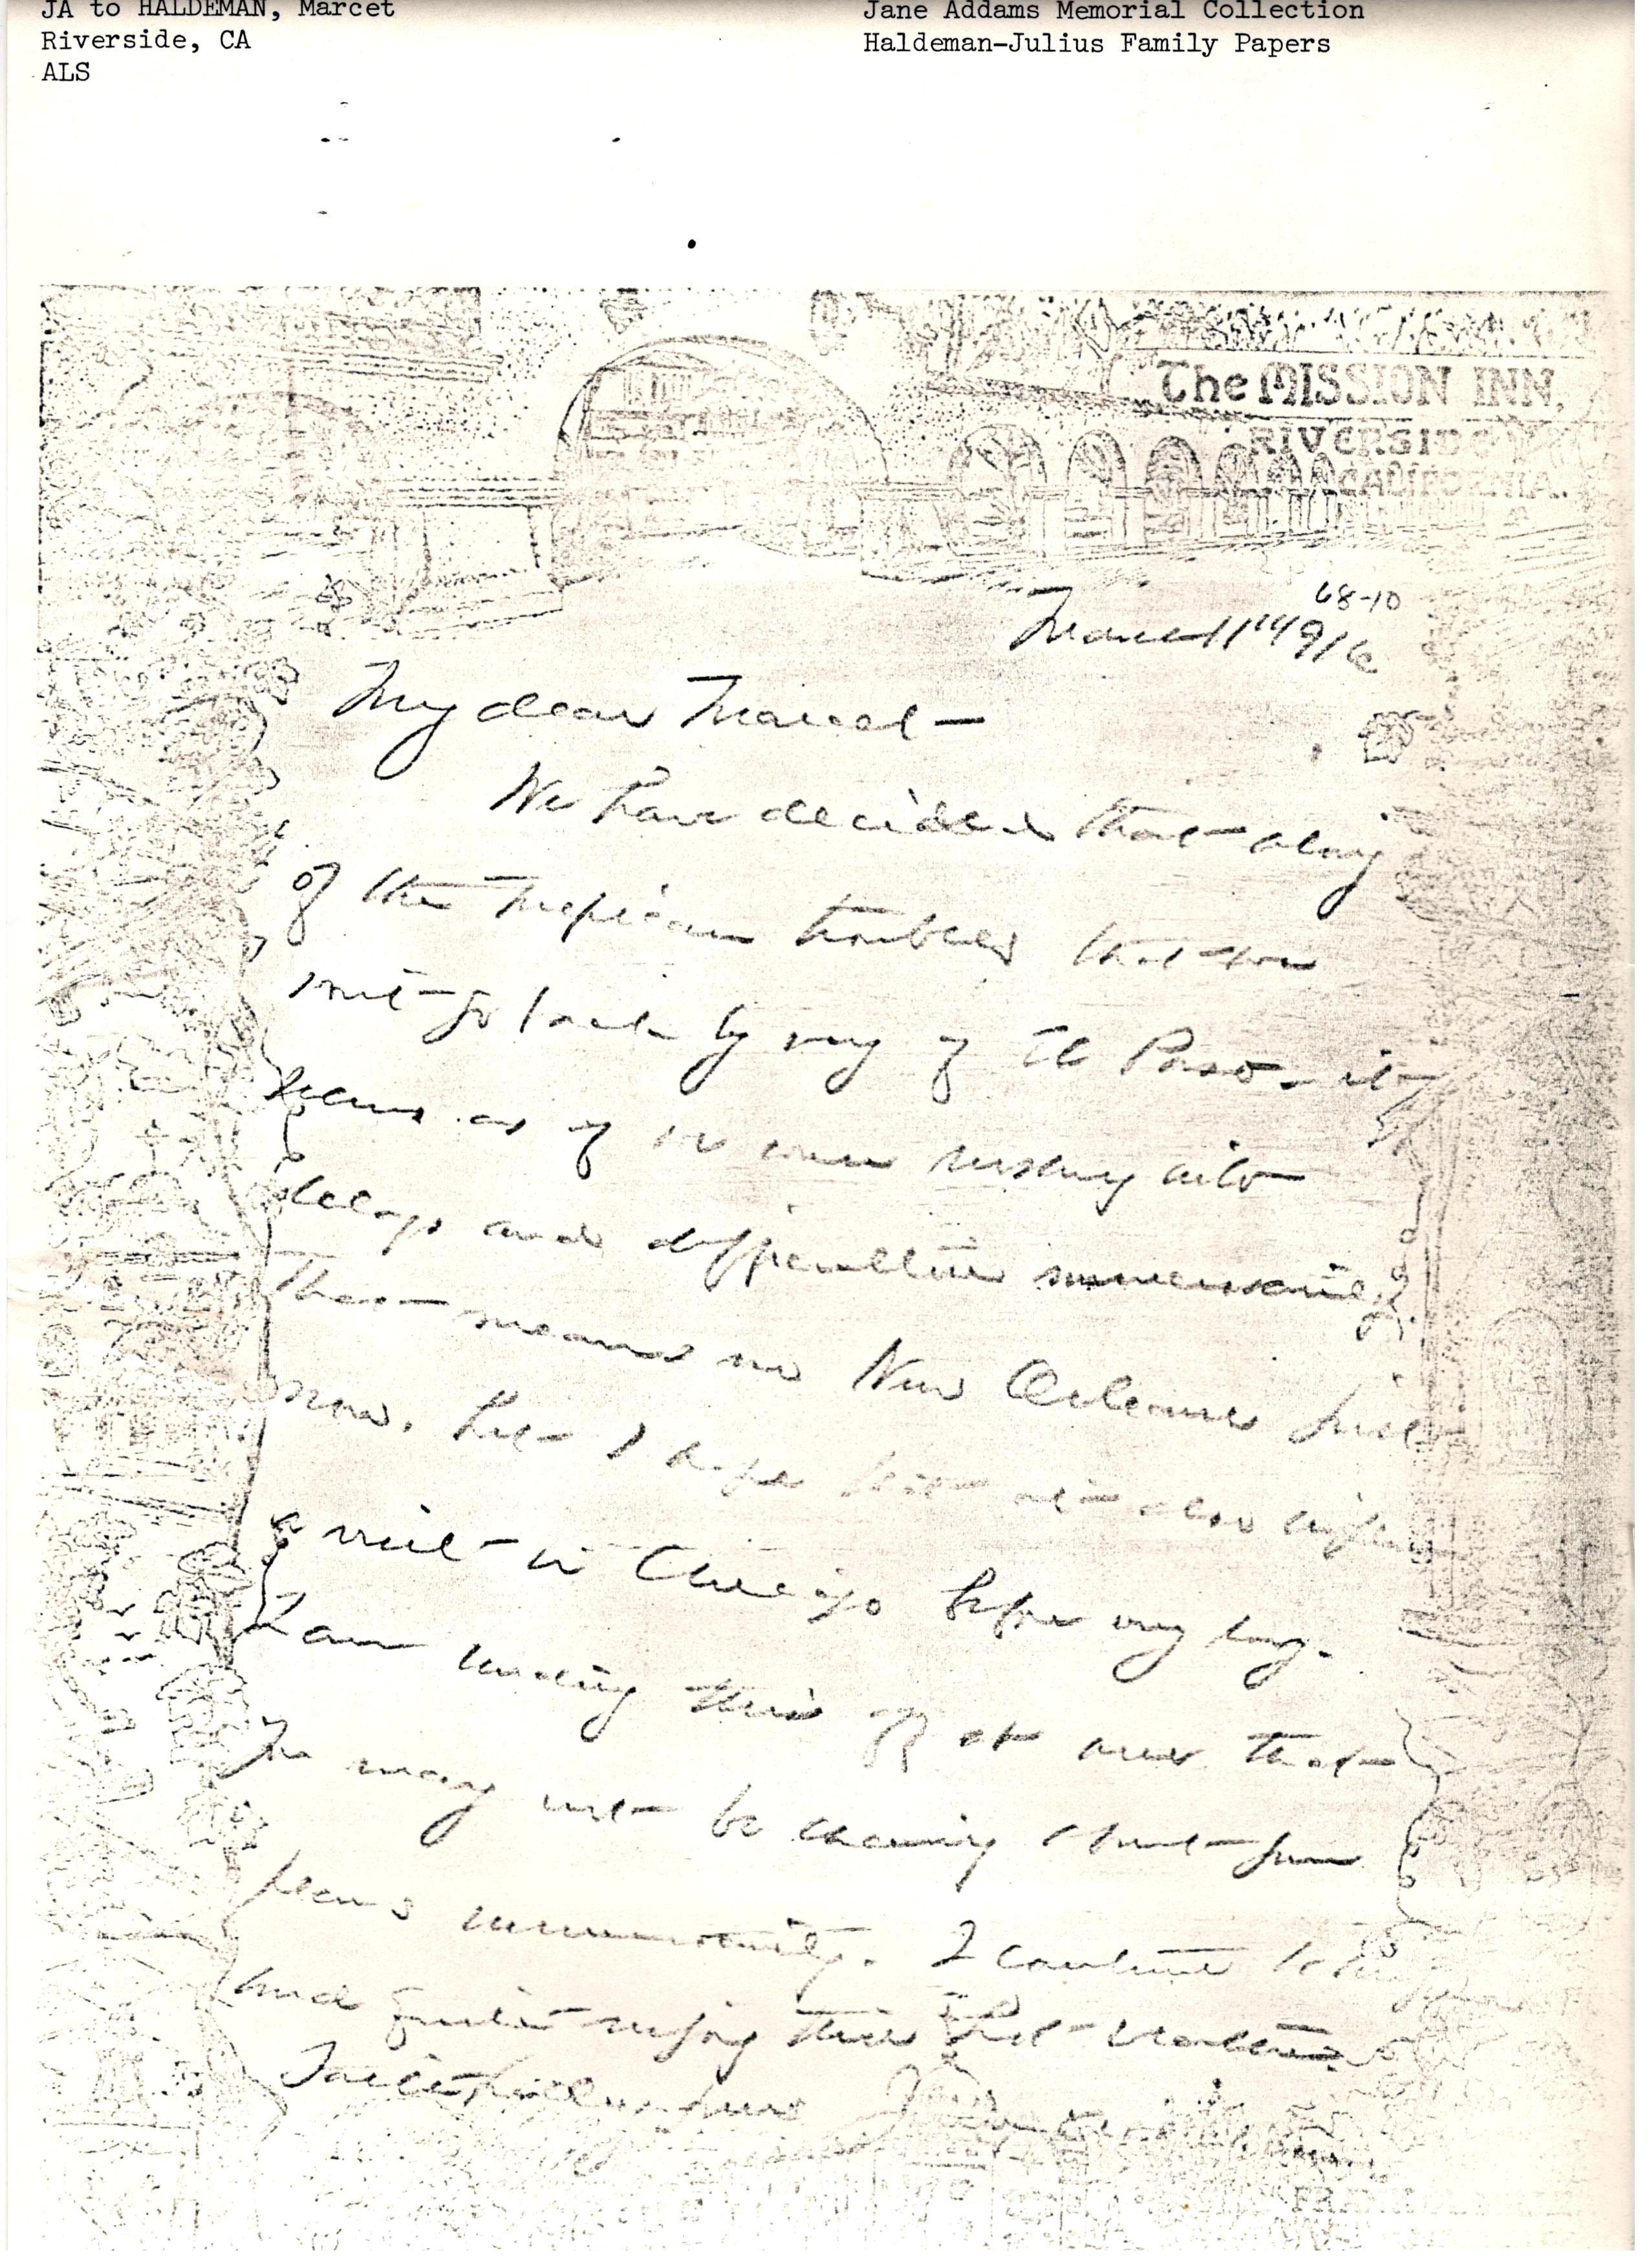 JA to HALDEMAN, Marcet
Riverside, CA
ALS
Jane Addams Memorial Collection
Haldeman-Julius Family Papers
The MISSION INN,
RIVERSIDE
CALIFORNIA.
68-10
March 1916
My dear Marcet —
We have decided that
of the Mexican troubles that we
not go back by way of El Paso. it
seems as if we were rushing into
delays and difficulties unnecessarily.
That means no New Orleans just
now. But I hope
a visit in Chicago before very long.
I am sending this off at once that
you may not be your
plans unnecessarily. I continue to
and quite enjoy this